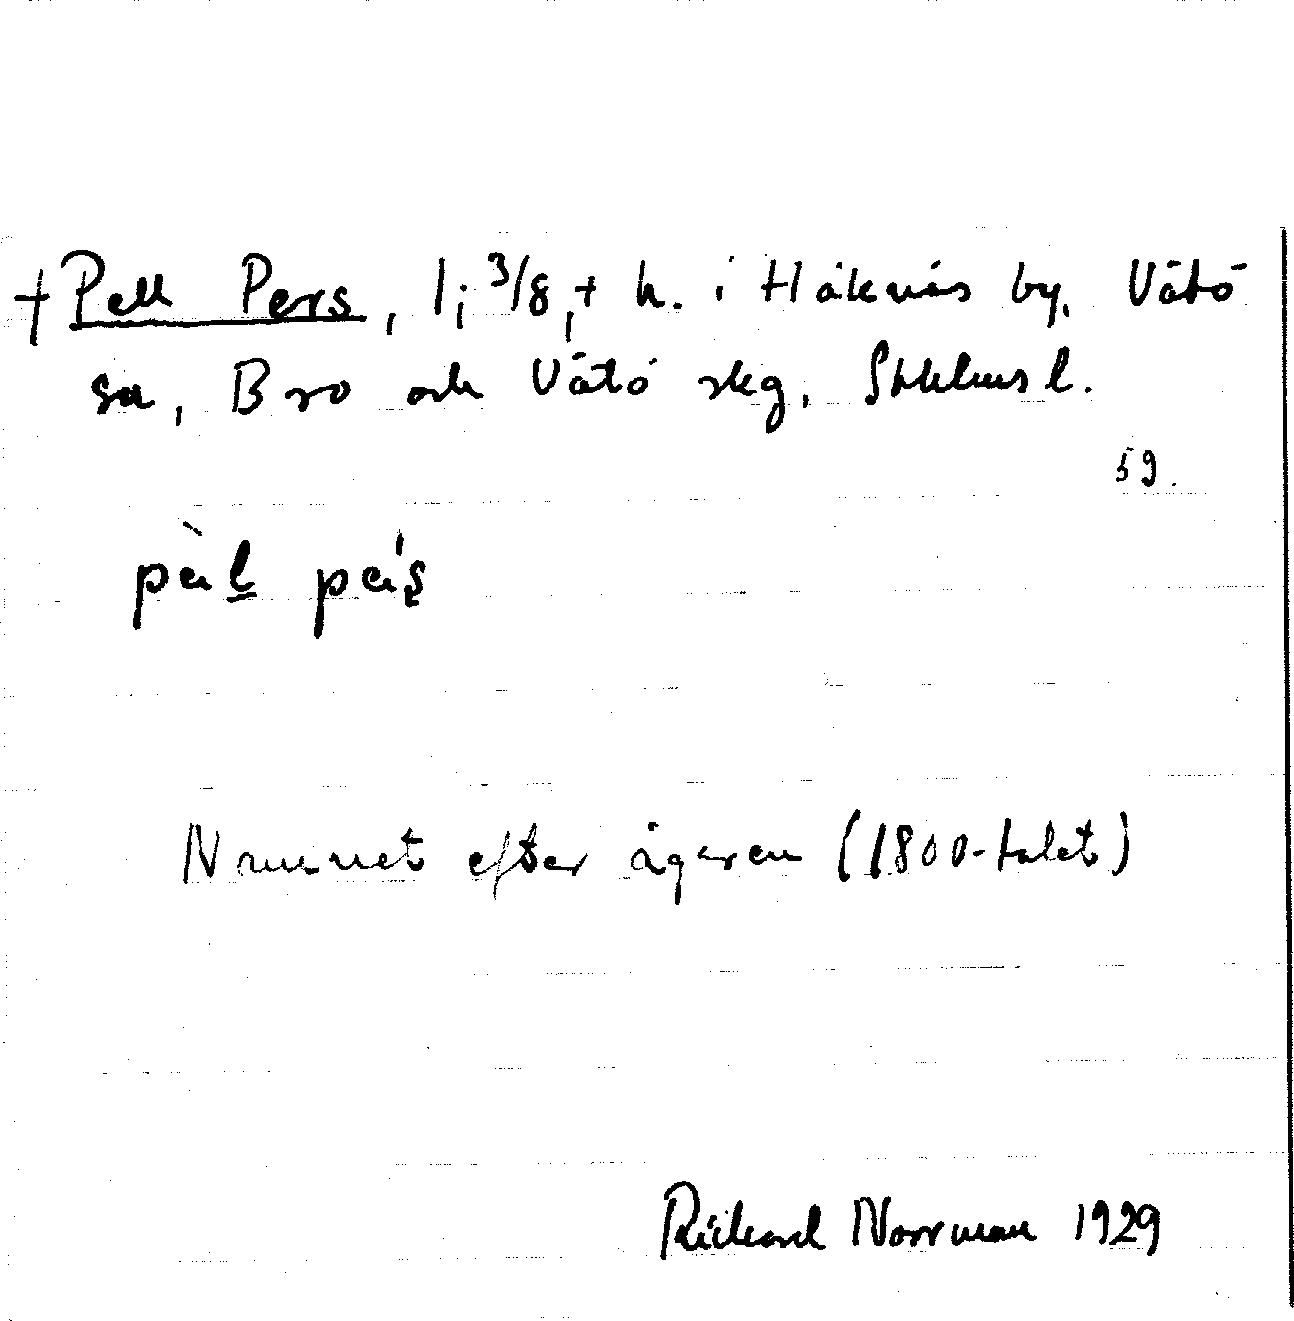 † Pell Pers, 1; 3/8, † h. i Håknäs by, Vätö
sn, Bro och Vätö skg, Sthlms l.
59.
pèl pæ´ʂ
Namnet efter ägaren (1800-talet)
Rickard Norrman 1929